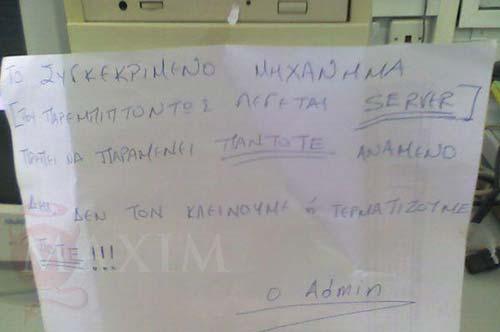 ΤΟ ΣΥΓΚΕΚΡΙΜΕΝΟ ΜΗΧΑΝΗΜΑ
[ΠΟΥ ΠΑΡΕΜΠΙΠΤΟΝΤΩΣ ΛΕΓΕΤΑΙ SERVER]
ΠΡΕΠΕΙ ΝΑ ΠΑΡΑΜΕΝΕΙ ΠΑΝΤΟΤΕ ΑΝΑΜΕΝΟ
ΔΕΝ ΤΟΝ ΚΛΕΙΝΟΥΜΕ ή ΤΕΡΜΑΤΙΖΟΥΜΕ
ΠΟΤΕ!!!
MAXIM
Ο Admin